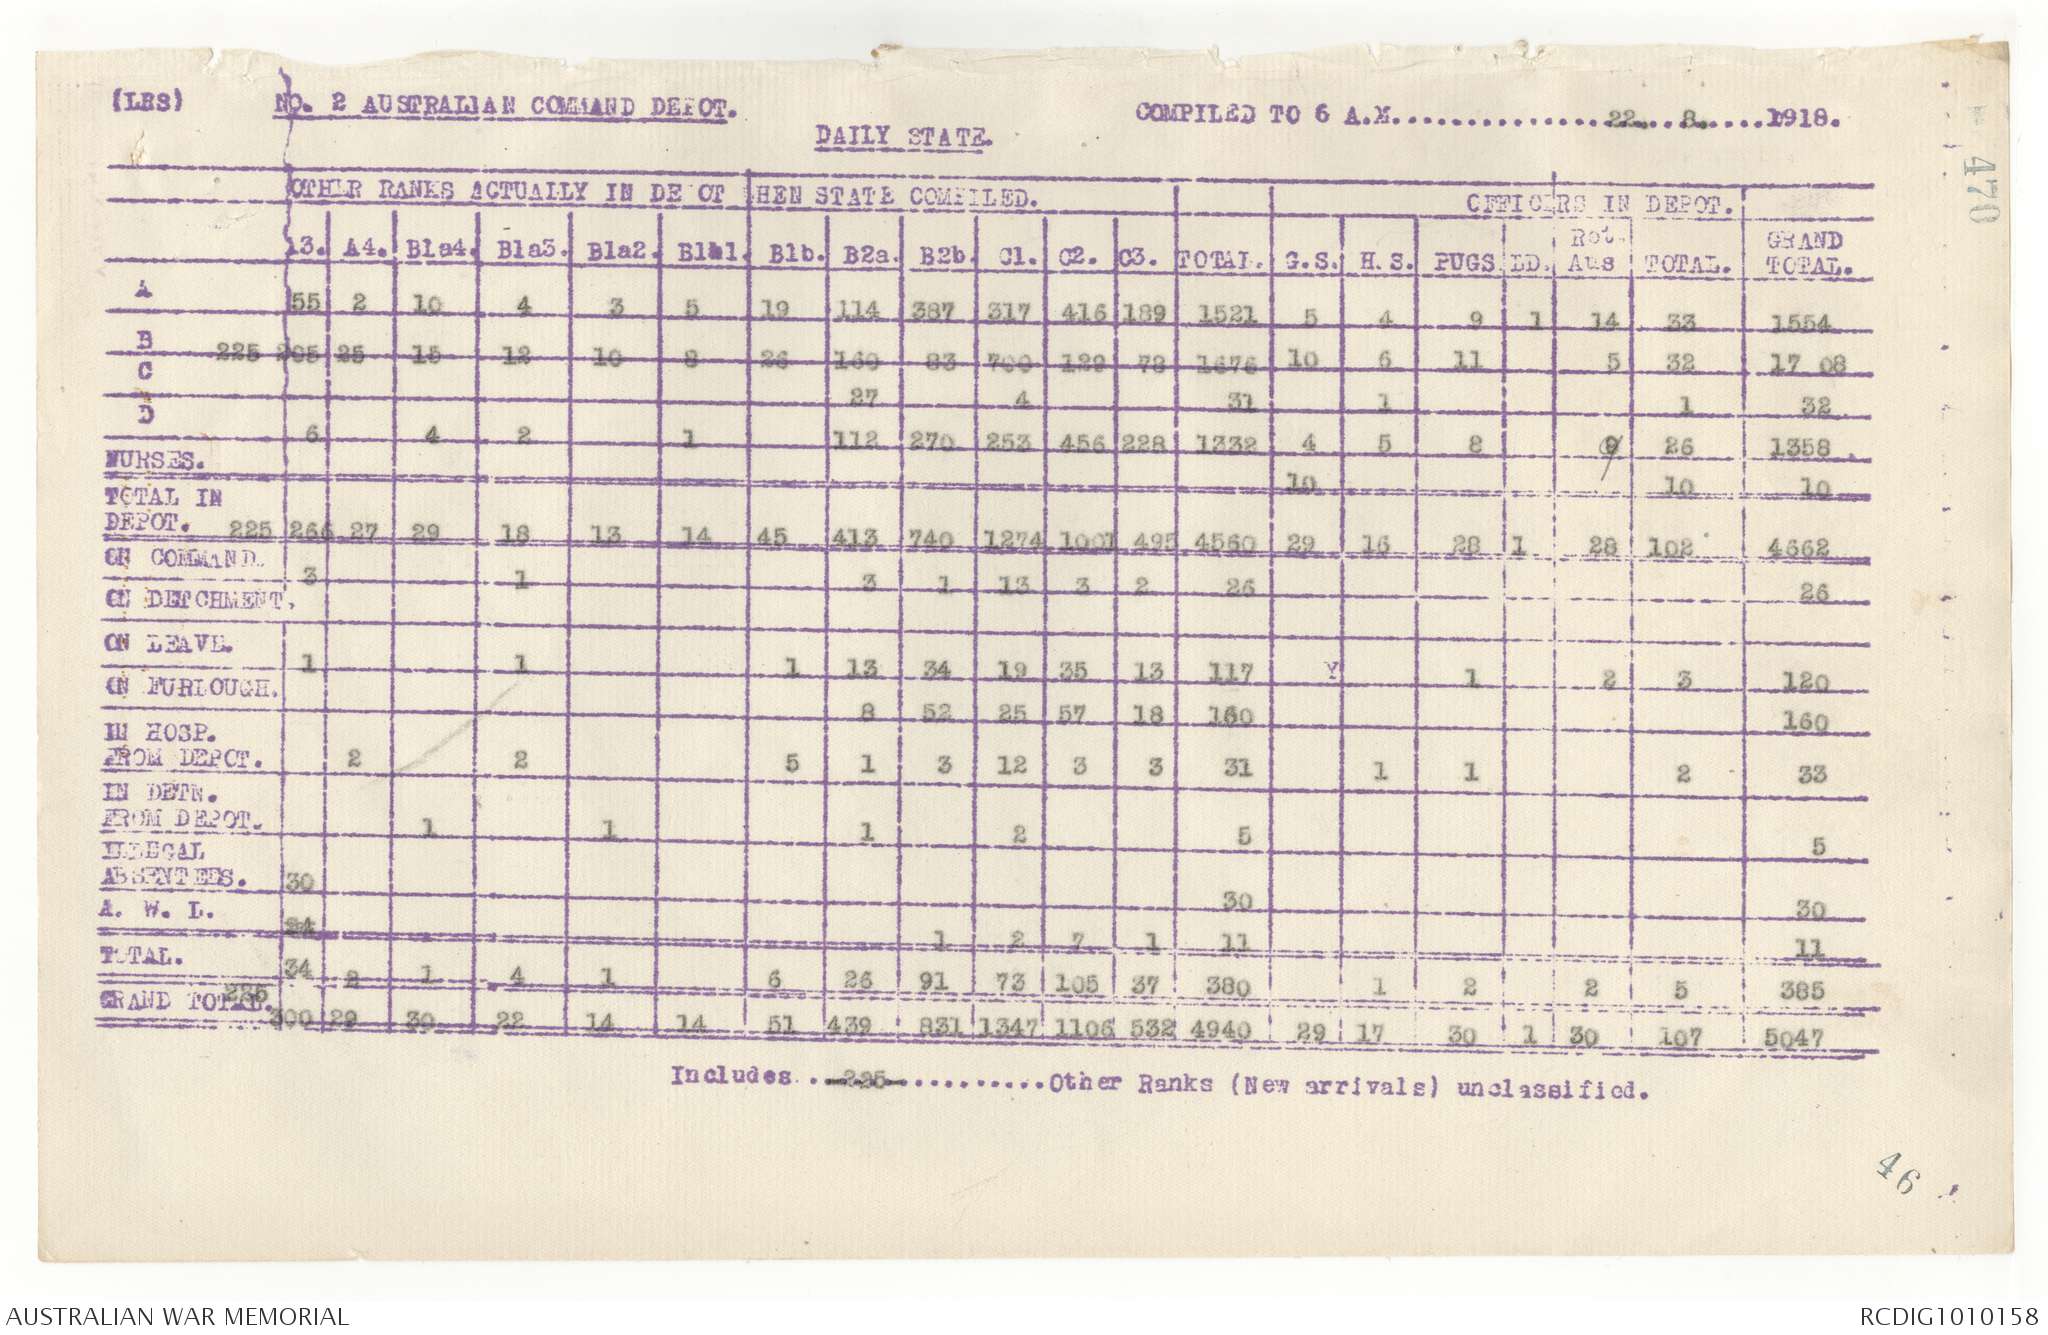 (LES) NO. 2 AUSTRALIAN COMMAND DEPOT. COMPILED TO 6 A.M. 22. 8. 1918.
DAILY STATE.
470
OTHER RANKS ACTUALLY IN DEPOT WHEN STATE COMPILED. OFFICERS IN DEPOT.
A3. A4. B1a4. B1a3. B1a2. B1a1. B1b. B2a. B2b. C1. C2. C3. TOTAL. G.S. H.S. PUGS DD. Ret. Aus TOTAL. GRAND TOTAL.
A 55 2 10 4 3 5 19 114 387 317 416 189 1521 5 4 9 1 14 33 1554
B 225 205 25 15 12 10 8 26 160 83 700 129 78 1676 10 6 11 5 32 17 08
C 27 4 31 1 1 32
D 6 4 2 1 112 270 253 456 228 1332 4 5 8 9 26 1358
NURSES. 10 10 10
TOTAL IN
DEPOT. 225 266 27 29 18 13 14 45 413 740 1274 1001 495 4560 29 16 28 1 28 102 4662
ON COMMAND. 3 1 3 1 13 3 2 26 26
ON DETCHMENT.
ON LEAVE. 1 1 1 13 34 19 35 13 117 Y 1 2 3 120
ON FURLOUGH. 8 52 25 57 18 160 160
IN HOSP.
FROM DEPOT. 2 2 5 1 3 12 3 3 31 1 1 2 33
IN DETN.
FROM DEPOT. 1 1 1 2 5 5
ILLEGAL
ABSENTEES. 30 30 30
A. W. L. 1 2 7 1 11 11
TOTAL. 34 2 1 4 1 6 26 91 73 105 37 380 1 2 2 5 385
GRAND TOTAL. 225 300 29 30 22 14 14 51 439 831 1347 1106 532 4940 29 17 30 1 30 107 5047
Includes...225...........Other Ranks (New arrivals) unclassified.
46
AUSTRALIAN WAR MEMORIAL RCDIG1010158